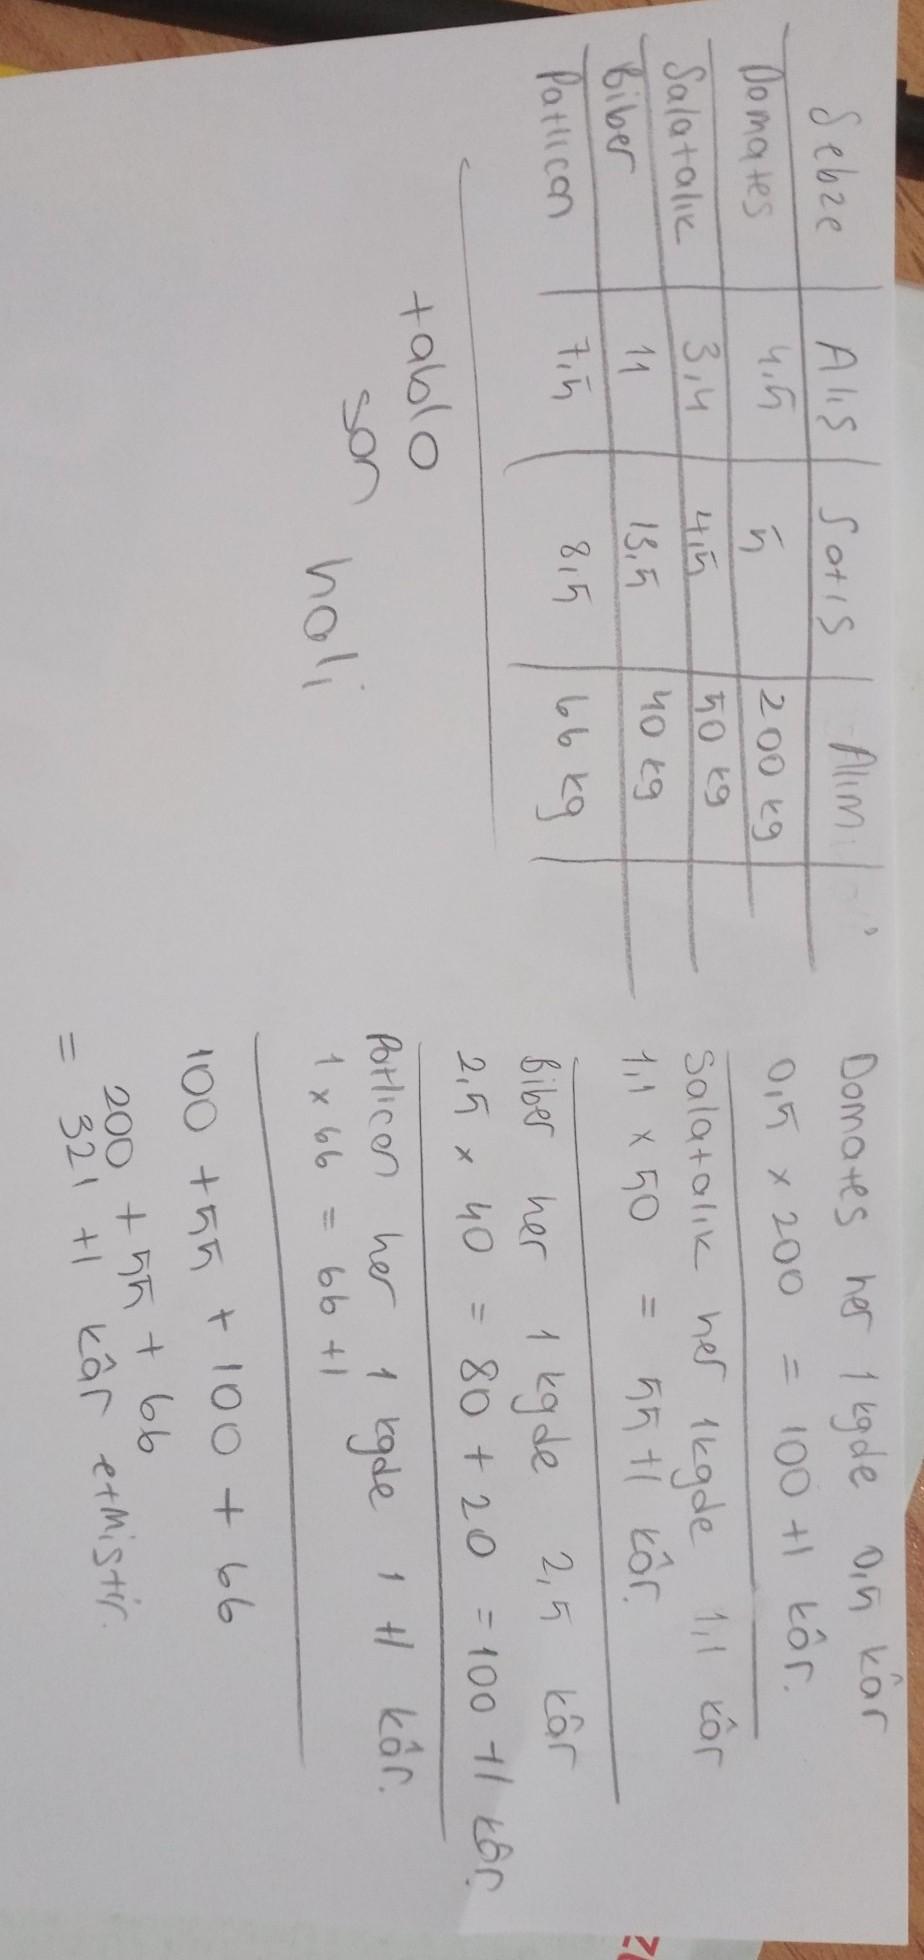 Sebze Alış Satış Alım
Domates 4,5 5 200 kg
Salatalık 3,4 4,5 50 kg
Biber 11 13,5 40 kg
Patlıcan 7,5 8,5 66 kg
tablo
son
hali
Domates her 1 kgde 0,5 kâr
0,5 x 200 = 100 tl kâr.
Salatalık her 1kgde 1,1 kâr
1,1 x 50 = 55 tl kâr.
Biber her 1 kgde 2,5 kâr
2,5 x 40 = 80 + 20 = 100 tl kâr.
Patlıcan her 1 kgde 1 tl kâr.
1 x 66 = 66 tl
100 + 55 + 100 + 66
200 + 55 + 66
= 321 tl kâr etmistir.